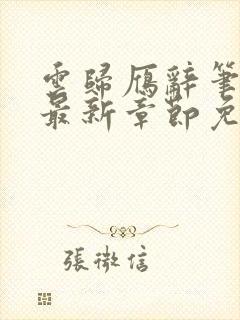 雲歸雁辭筆
最新章節免
張微信